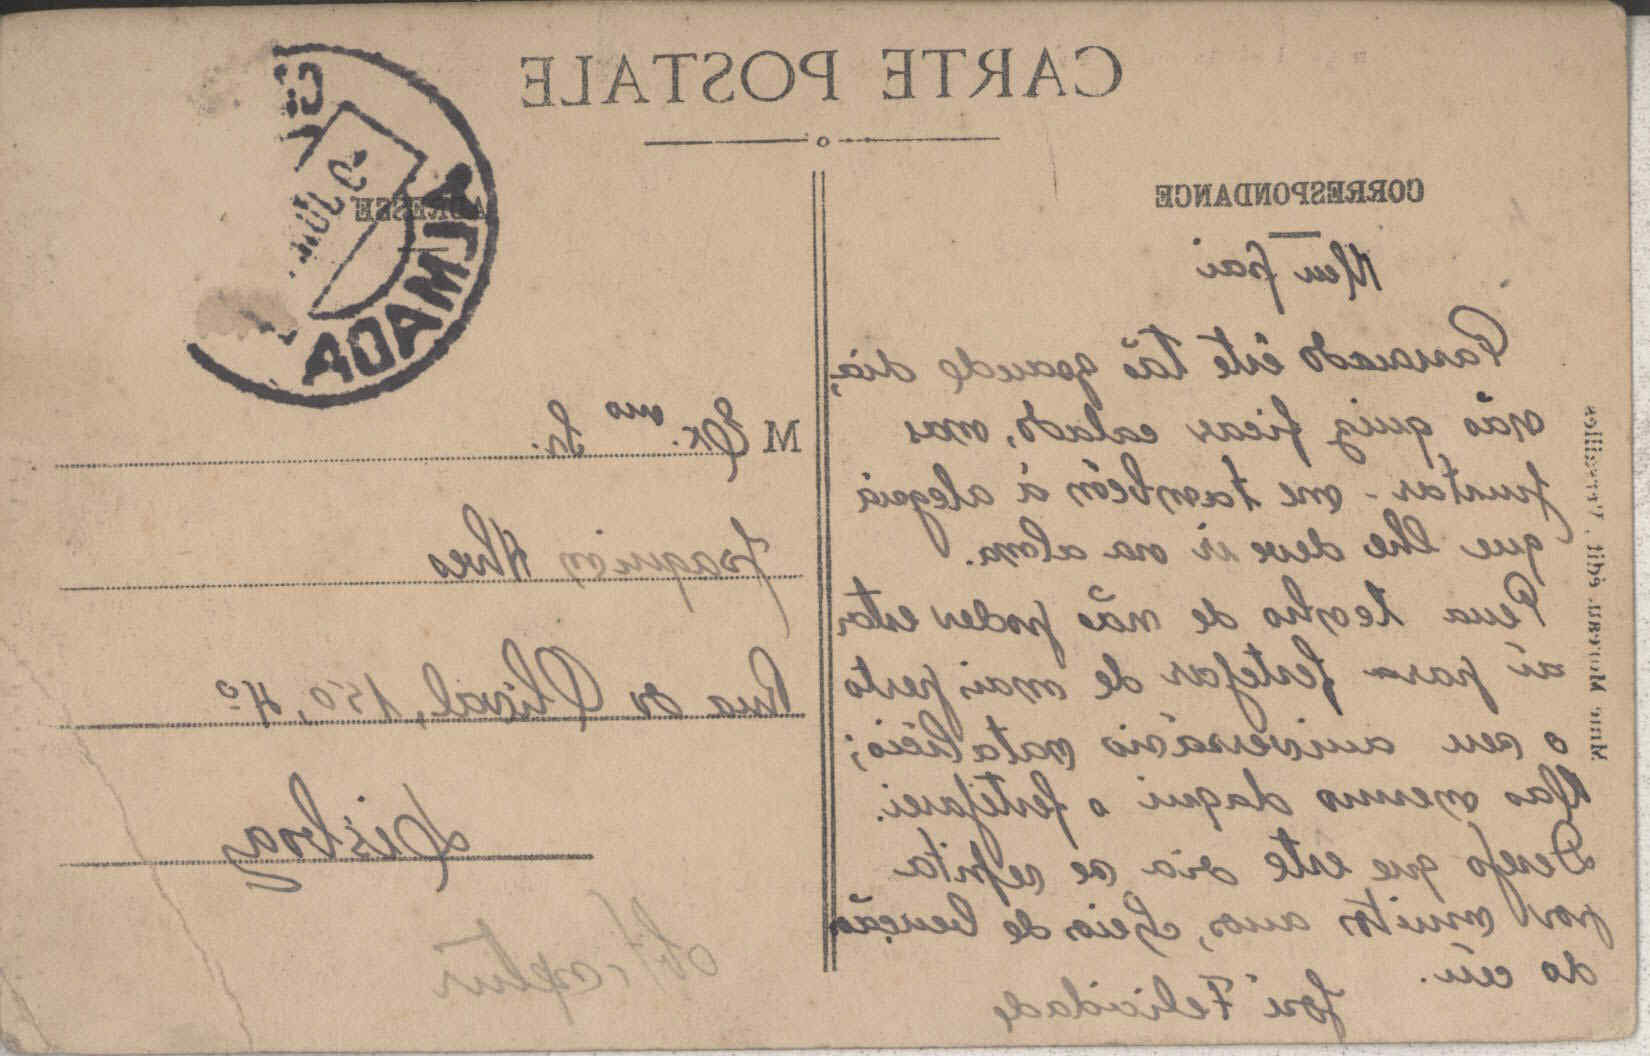 CARTE POSTALE
CORRESPONDANCE
Meu pai
Passando êste tão grande dia,
não quiz ficar calado, mas
juntar-me tambêm á alegria
que lhe deve ir na alma.
Pena tenho de não poder estar
aí para festejar de mais perto
o seu aniversário natalicio;
Mas mesmo daqui o festejarei.
Desejo que este dia se repita
por muitos anos, cheios de benção
do céu.
José Felicidade
ADRESSE
ALMADA
M Ex.mo Sr.
Joaquim Alves
Rua do Olival, 150, 4º
Lisboa
édit., Marseilles